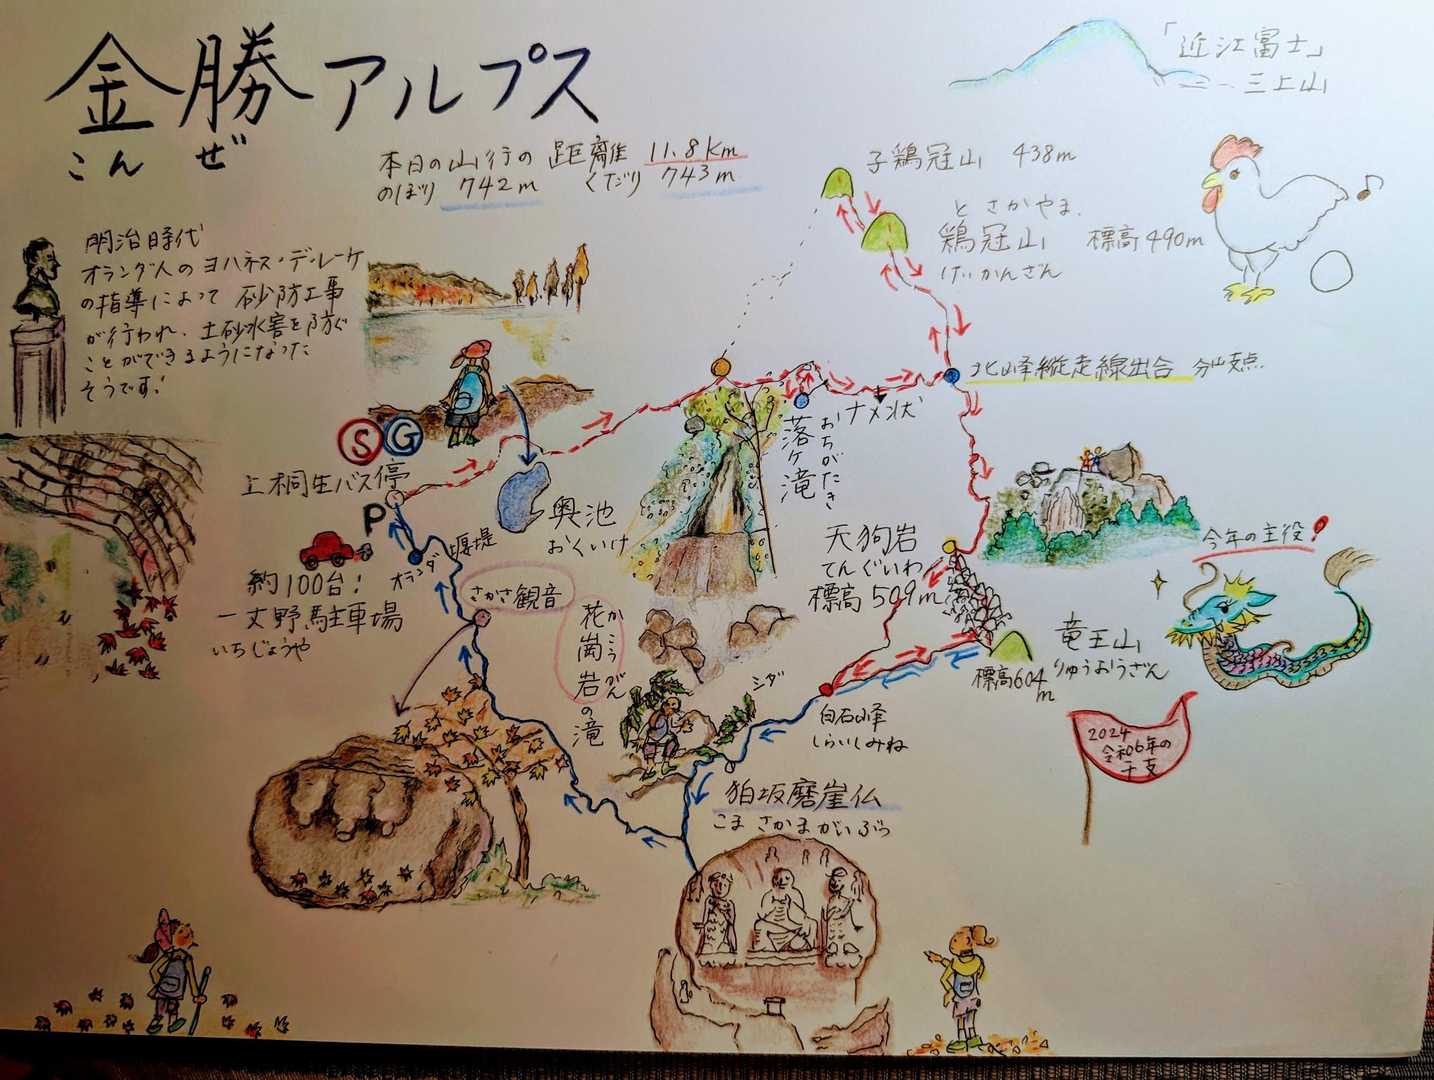 金勝アルプス
こんぜ
本日の山行の距離 11.8Km
のぼり 742m くだり 743m
「近江富士」
三上山
子鶏冠山 438m
とさかやま
鶏冠山 標高490m
けいかんざん
明治時代
オランダ人のヨハネス・デ・レーケ
の指導によって 砂防工事
が行われ、土砂水害を防ぐ
ことができるようになった
そうです!
北峰縦走線出合 分岐点
S G
上桐生バス停
P
約100台!
一丈野駐車場
いちじょうや
オランダ堰堤
奥池
おくいけ
落ヶ滝
おちがたき
ナメ状
天狗岩
てんぐいわ
標高 509m
今年の主役!
竜王山
りゅうおうざん
標高604m
さかさ観音
花崗岩の滝
かこうがん
シダ
白石峰
しらいしみね
2024
令和6年の
干支
狛坂磨崖仏
こまさかまがいぶつ